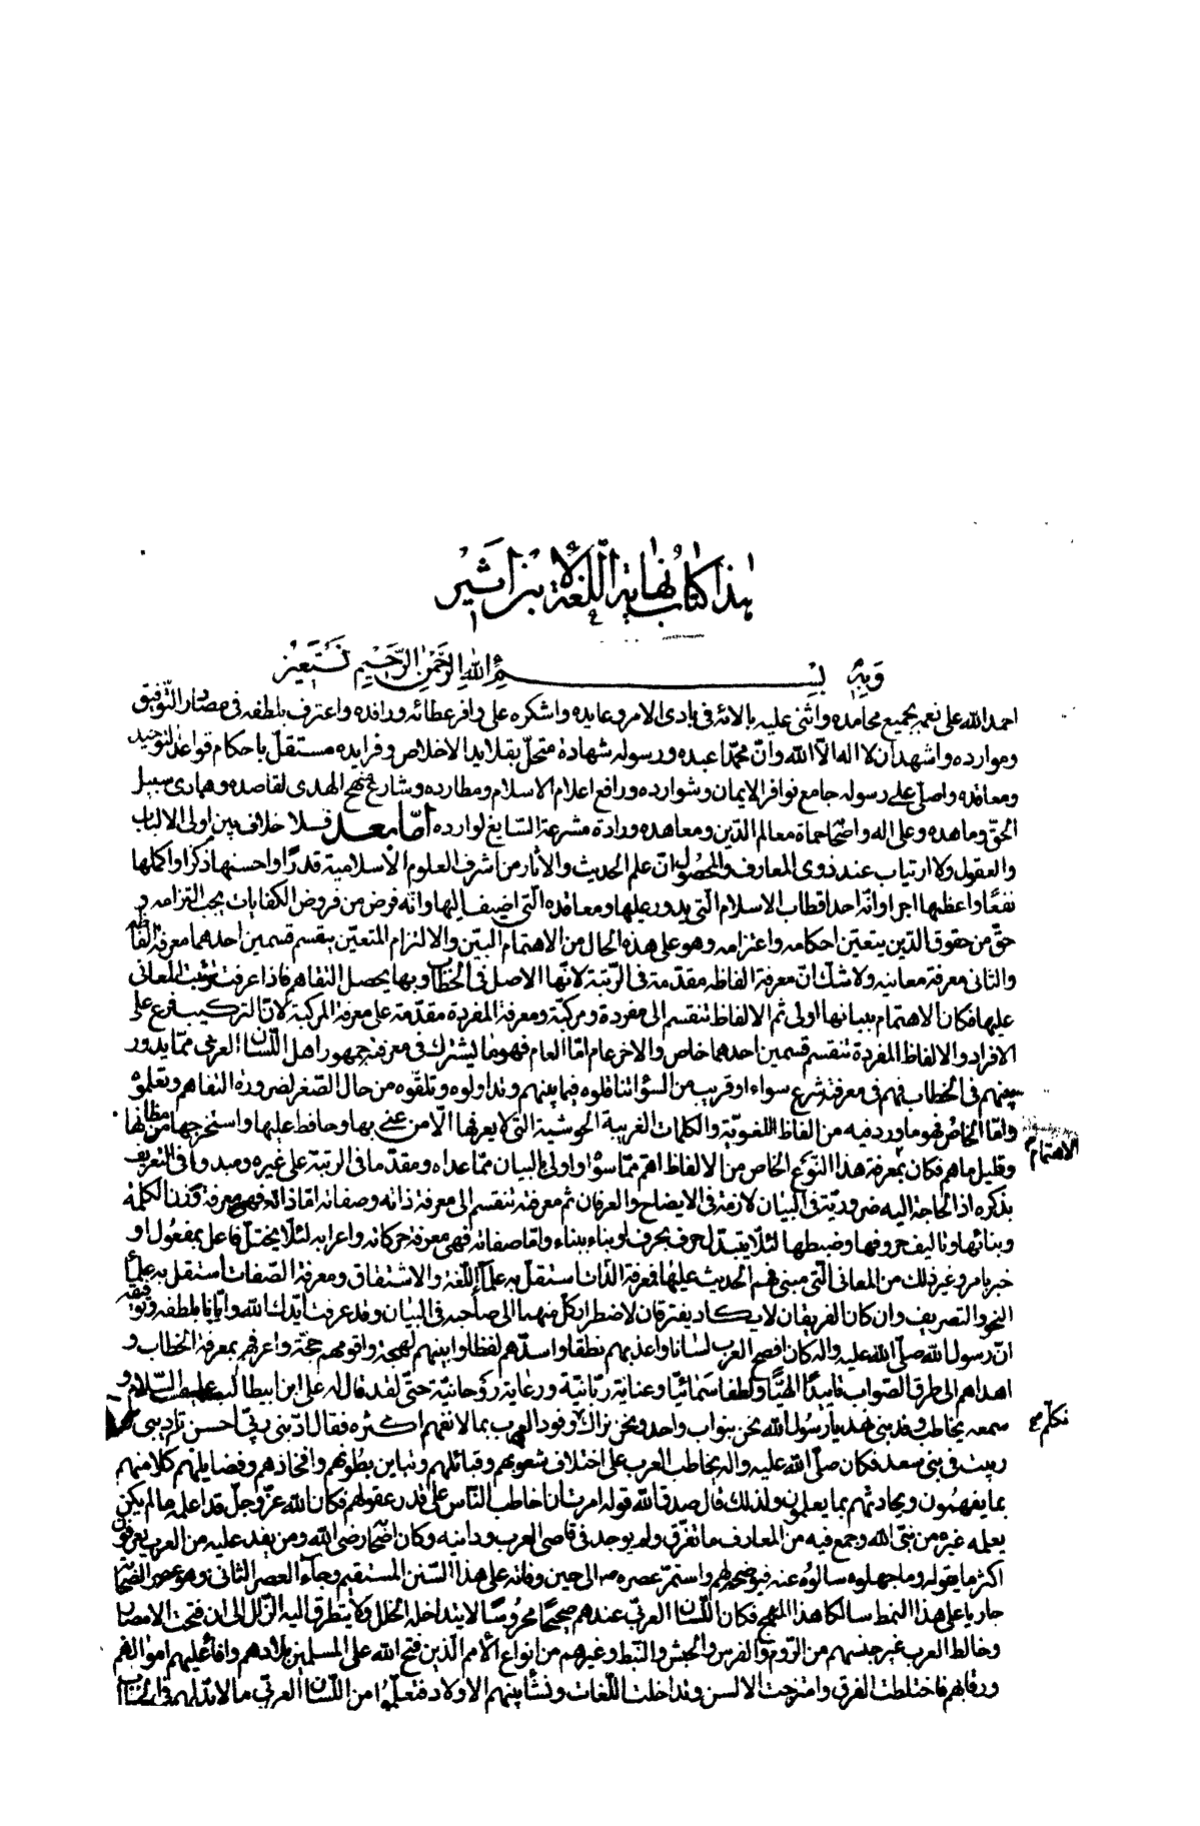 هذا كتاب نهاية اللغة لابن اثير
وبه بسم الله الرحمن الرحيم نستعين
احمد الله على نعمه بجميع محامده واثنى عليه بالائه فى بادى الامر وعايده واشكره على وافر عطائه ورافده واعترف بلطفه فى مصادر التّوفيق
وموارده واشهد ان لا اله الّا الله وانّ محمّدا عبده ورسوله شهادة متحلّ بقلايد الاخلاص وفرايده مستقلّ باحكام قواعد التوحيد
ومعاقده واصلّى على رسوله جامع نوافر الايمان وشوارده ورافع اعلام الاسلام ومطارده وشارع نهج الهدى لقاصده وهادى سبيل
الحقّ وماهده وعلى اله واصحابه حماة معالم الدّين ومعاهده ورادة مشرعة السّايغ لوارده امّا بعد فلا خلاف بين اولى الالباب
والعقول ولا ارتياب عند ذوى المعارف والمحصول انّ علم الحديث والاثار من اشرف العلوم الاسلامية قدرًا واحسنها ذكرا واكملها
نفعًا واعظمها اجرا وانّه احد اقطاب الاسلام الّتى يدور عليها ومعاقده الّتى اضيف اليها وانّه فرض من فروض الكفايات يجب التزامه و
حقّ من حقوق الدّين يتعيّن احكامه واعتزامه وهو على هذه الحال من الاهتمام البيّن والالتزام المتعيّن ينقسم قسمين احدهما معرفة الفاظه
والثانى معرفة معانيه ولا شكّ انّ معرفة الفاظه مقدّمة فى الرّتبة لانّها الاصل فى الخطاب وبها يحصل التفاهم فاذا عرفت ترتّبت المعانى
عليها فكان الاهتمام ببيانها اولى ثم الالفاظ تنقسم الى مفردة ومركبّة ومعرفة المفردة مقدّمة على معرفة المركبة لانّ التركيب فرع على
الافراد والالفاظ المفردة تنقسم قسمين احدهما خاص والاخر عام امّا العام فهو ما يشترك فى معرفته جمهور اهل اللّسان العربى ممّا يدور
بينهم فى الخطاب فهم فى معرفته شرع سواء او قريب من السّواء تناقلوه فيما بينهم وتداولوه وتلقّوه من حال الصّغر لضرورة التفاهم وتعلموه
وامّا الخاص فهو ما ورد فيه من الفاظ اللغويّة والكلمات الغريبة الحوشية الّتى لا يعرفها الّا من عنى بها وحافظ عليها واستخرجها من مظانها
الاهتمام
وقليل ماهم فكان بمعرفة هذا النّوع الخاص من الالفاظ اهمّ ممّا سواه واولى بالبيان ممّا عداه ومقدّما فى الرتبة على غيره ومبدوأ فى التعريف
بذكره اذ الحاجة اليه ضروريّة فى البيان لازمة فى الايضاح والعرفان ثم معرفته تنقسم الى معرفة ذاته وصفاته امّا ذاته فهى معرفة وزن الكلمة
وبنائها وتاليف حروفها وضبطها لئلّا يتبدّل حرف بحرف او بناء ببناء وامّا صفاته فهى معرفة حركاته واعرابه لئلّا يختلّ فاعل بمفعول او
خبر بامر وغير ذلك من المعانى الّتى مبنى فهم الحديث عليها فمعرفة الذّات استقلّ به علماء اللّغة والاشتقاق ومعرفة الصّفات استقل به علماء
النحو والتصريف وان كان الفريقان لا يكاد يفترقان لاضطرار كلّ منهما الى صاحبه فى البيان وقد عرفت ايّدك الله وايّانا بلطفه وتوفيقه
انّ رسول الله صلّى الله عليه واله كان افصح العرب لسانا واعذبهم نطقا واسدّهم لفظا وابينهم لهجة واقومهم حجّة واعرفهم بمعرفة الخطاب و
اهداهم الى طرق الصّواب تاييدًا الهيًّا ولطفا سمائيًا وعناية ربّانيّة ورعاية روحانيّة حتّى لقد قال له على ابن ابيطالب عليه السّلام و
سمعه يخاطب وفد بنى نهد يا رسول الله نحن بنو اب واحد ونحن نراك وفود العرب بما لا نفهم اكثره فقال ادّبنى ربّى فاحسن تاديبى
تكلّم
ربيت فى بنى سعد فكان صلّى الله عليه واله يخاطب العرب على اختلاف شعوبهم وقبائلهم وتباين بطونهم وافخاذهم وفضايلهم كلا منهم
بما يفهمون ويحادثهم بما يعلمون ولذلك قال صدق الله قوله امرت ان اخاطب النّاس على قدر عقولهم فكان الله عزّوجلّ قد اعلمه ما لم يكن
يعلمه غيره من بنى الله وجمع فيه من المعارف ما تفرّق ولم يوجد فى قاصى العرب ودانيه وكان اصحابه رضى الله ومن يفد عليه من العرب يعرفون
اكثر ما يقوله وما جهلوه سالوه عنه فيوضحه لهم واستمرّ عصره ص الى حين وفاته على هذا السّنن المستقيم وجآء العصر الثانى وهو عصر الصّحابة
جاريا على هذا النمط سالكا هذا المنهج فكان اللّسان العربّى عندهم صحيحًا محروسًا لا يتداخله الخلل ولا يتطرق اليه الزّلل الى ان فتحت الامصار
وخالط العرب غير جنسهم من الرّوم والفرس والحبش والنّبط وغيرهم من انواع الأمم الّذين فتح الله على المسلمين بلادهم وافآء عليهم اموالهم
ورقابهم فاختلطت الفرق وامتزجت الالسن وتداخلت اللّغات ونشأ بينهم الاولاد فتعلّموا من اللّسان العربّى ما لا بدّ لهم فى الخطاب